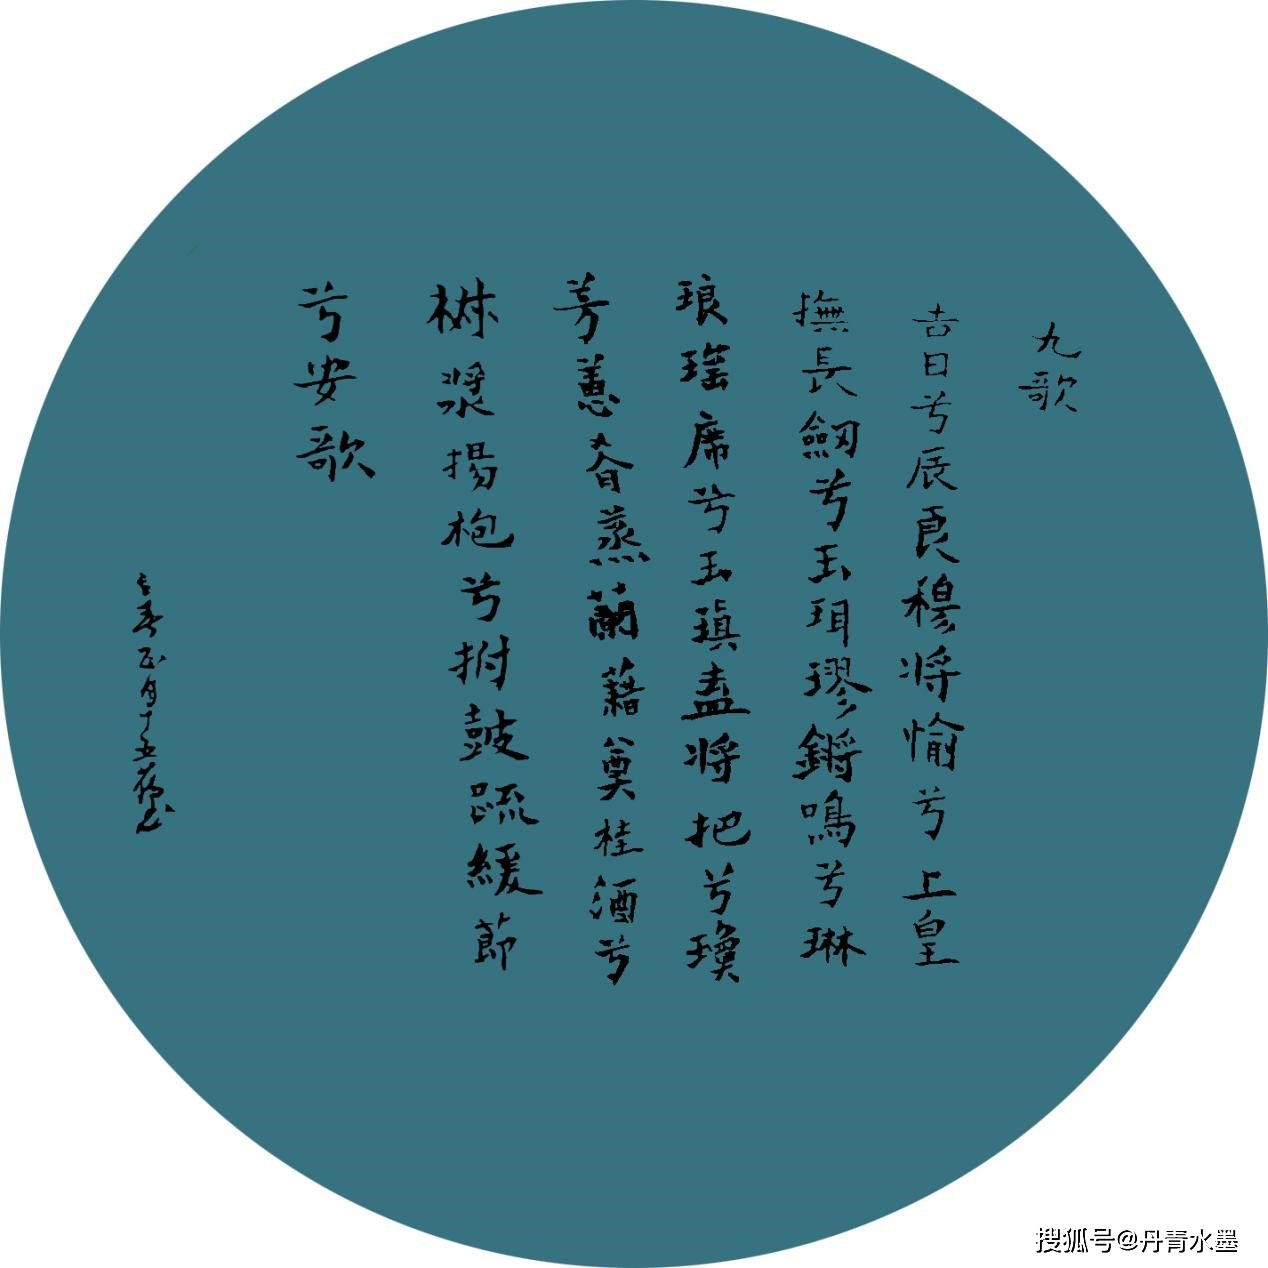 九歌
吉日兮辰良穆将愉兮上皇
撫長劒兮玉珥璆鏘鳴兮琳
琅瑶席兮玉瑱盍将把兮瓊
芳蕙肴蒸蘭藉奠桂酒兮
椒漿揚枹兮拊鼓疏緩節
兮安歌
正月十五
搜狐号@丹青水墨